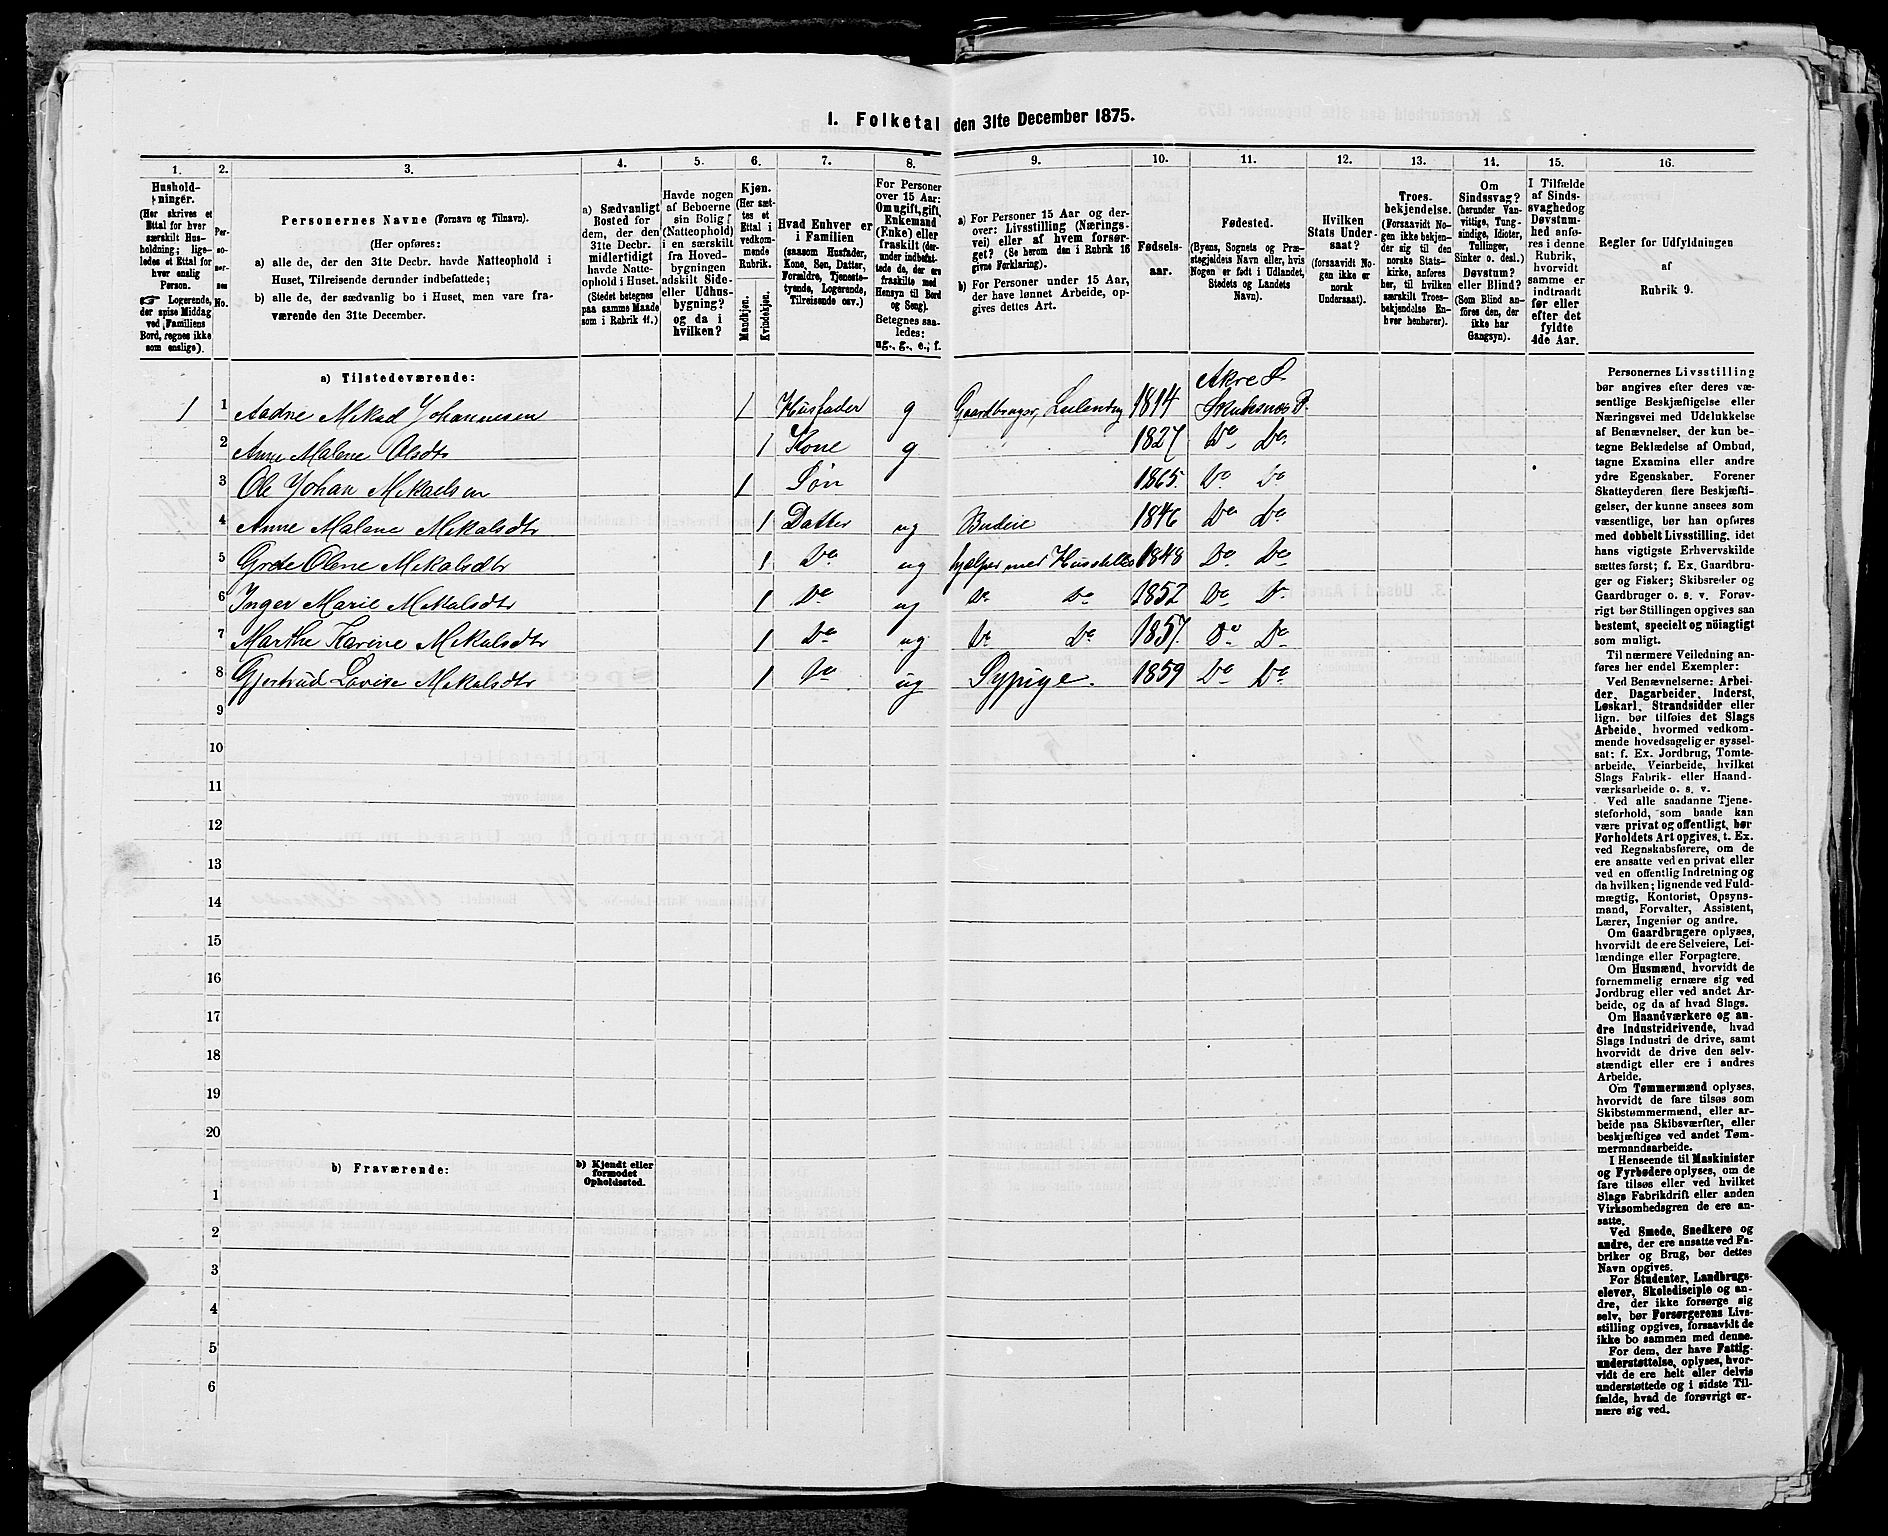 1. Folketal den 31te December 1875.
1. 2. 3. 4. 5. 6. 7. 8. 9. 10. 11. 12. 13. 14. 15. 16.
Hushold-
ninger.
(Her skrives et
Ettal for hver
særskilt Hus-
holdning; lige-
ledes et Ettal for
hver enslig
Person.
☞ Logerende,
der spise Middag
ved Familiens
Bord, regnes ikke
som enslige).
Per-
so-
ner-
nes
No.
Personernes Navne (Fornavn og Tilnavn).
(Her opføres:
a) alle de, der den 31te Decbr. havde Natteophold i
Huset, Tilreisende derunder indbefattede;
b) alle de, der sædvanlig bo i Huset, men vare fra-
værende den 31te December.
a) Sædvanligt
Bosted for
dem, der den
31te Decbr.
midlertidigt
havde Natte-
ophold i Huset.
(Stedet betegnes
paa samme Maade
som i Rubrik 11.)
Havde nogen
af Beboerne
sin Bolig
(Natteophold)
i en særskilt
fra Hoved-
bygningen
adskilt Side-
eller Udhus-
bygning?
og da i
hvilken?
Kjøn.
(Her sæt-
tes et
Ettal i
vedkom-
mende
Rubrik.
Mandkjøn.
Kvindekjøn.
Hvad Enhver er
i Familien
(saasom Husfader,
Kone, Søn, Datter,
Forældre, Tjeneste-
tyende, Logerende,
Tilreisende osv.)
For Personer
over 15 Aar:
Om ugift, gift,
Enkemand
(Enke) eller
fraskilt (der-
under indbefat-
tede de, der ere
fraskilte med
Hensyn til Bord
og Seng).
Betegnes saa-
ledes:
ug., g., e.; f.
a) For Personer 15 Aar og der-
over: Livsstilling (Nærings-
vei) eller af hvem forsør-
get? (Se herom den i Rubrik 16
givne Forklaring).
b) For Personer under 15 Aar,
der have lønnet Arbeide, op-
gives dettes Art.
Fødsels-
aar.
Fødested.
(Byens, Sognets og Præ-
stegjeldets Navn eller, hvis
Nogen er født i Udlandet,
Stedets og Landets
Navn).
Hvilken
Stats Under-
saat?
(forsaavidt No-
gen ikke er
norsk
Undersaat).
Troes-
bekjendelse.
(Forsaavidt No-
gen ikke bekjen-
der sig til den
norske Stats-
kirke, anføres
her, til hvilken
særskilt Troes-
bekjendelse En-
hver henhører).
Om
Sindssvag?
(herunder Van-
vittige, Tung-
sindige, Idioter,
Tullinger,
Sinker o. desl.)
Døvstum?
eller Blind?
(Som Blind an-
føres den, der
ikke har
Gangsyn).
I Tilfælde
af Sinds-
svaghed og
Døvstum-
hed anfø-
res i denne
Rubrik,
hvorvidt
samme er
indtraadt
før eller
efter det
fyldte
4de Aar.
Regler for Udfyldningen
af
Rubrik 9.
a) Tilstedeværende:
Akre S.
1 1 Aadne Mikal Johannesen 1 Husfader g Gaardbruger, Leilending 1814 Skudesnæs P.
2 Anne Malene Olsdtr 1 Kone g 1827 Do Do
3 Ole Johan Mikaelsen 1 Søn 1865 Do Do
4 Anne Malene Mikalsdtr 1 Datter ug Budeie 1846 Do Do
5 Grete Olene Mikalsdtr 1 Do ug hjælper med Husstellet 1848 Do Do
6 Inger Marie Mikalsdtr 1 Do ug Do Do 1852 Do Do
7 Marthe Karine Mikalsdtr 1 Do ug Do Do 1857. Do Do
8 Gjertrud Lovise Mikalsdtr 1 Do ug Sypige. 1859 Do Do
9
10
11
12
13
14
15
16
17
18
19
20
b) Fraværende:
b) Kjendt eller
formodet
Opholdssted.
1
2
3
4
5
6
Personernes Livsstilling
bør angives efter deres væ-
sentlige Beskjæftigelse eller
Næringsvei med Udelukkelse
af Benævnelser, der kun be-
tegne Beklædelse af Ombud,
tagne Examina eller andre
ydre Egenskaber. Forener
Skatteyderen flere Beskjæfti-
gelser, der kunne ansees som
væsentlige, bør han opføres
med dobbelt Livsstilling, idet
hans vigtigste Erhvervskilde
sættes først; f. Ex. Gaardbru-
ger og Fisker; Skibsreder og
Gaardbruger o. s. v. Forøv-
rigt bør Stillingen opgives saa
bestemt, specielt og nöiagtigt
som muligt.
Til nærmere Veiledning an-
føres her endel Exempler:
Ved Benævnelserne: Arbei-
der, Dagarbeider, Inderst,
Løskarl, Strandsidder eller
lign. bør tilføies det Slags
Arbeide, hvormed vedkom-
mende hovedsagelig er syssel-
sat; f. Ex. Jordbrug, Tomte-
arbeide, Veiarbeide, hvilket
Slags Fabrik- eller Haand-
værksarbeide o. s. v.
Ved alle saadanne Tjene-
steforhold, som baade kan
være privat og offentligt, bør
Forholdets Art opgives, t. Ex.
ved Regnskabsførere, om de
ere ansatte ved en privat eller
ved en offentlig Indretning og
da hvilken; lignende ved Fuld-
mægtig, Kontorist, Opsyns-
mand, Forvalter, Assistent,
Lærer, Ingeniør og andre.
Om Gaardbrugere oplyses,
hvorvidt de ere Selveiere, Lei-
lændinge eller Forpagtere.
Om Husmænd, hvorvidt de
fornemmelig ernære sig ved
Jordbrug eller ved andet Ar-
beide, og da af hvad Slags.
Om Haandværkere og an-
dre Industridrivende, hvad
Slags Industri de drive, samt
hvorvidt de drive den selv-
stændigt eller ere i andres
Arbeide.
Om Tømmermænd oplyses,
hvorvidt de fare tilsøs som
Skibstømmermænd, eller ar-
beide paa Skibsværfter, eller
beskjæftiges ved andet Tøm-
mermandsarbeide.
I Henseende til Maskinister
og Fyrbødere oplyses, om de
fare tilsøs eller ved hvilket
Slags Fabrikdrift eller anden
Virksomhedsgren de ere an-
satte.
Ved Smede, Snedkere og
andre, der ere ansatte ved Fa-
briker og Brug, bør dettes
Navn opgives.
For Studenter, Landbrugs-
elever, Skoledisciple og an-
dre, der ikke forsørge sig
selv, bør Forsørgerens Livs-
stilling opgives, forsaavidt de
ikke bo sammen med denne.
For dem, der have Fattig-
understøttelse, oplyses, hvor-
vidt de ere helt eller delvis
understøttede og i sidste Til-
fælde, hvad de forøvrigt er-
nære sig ved.